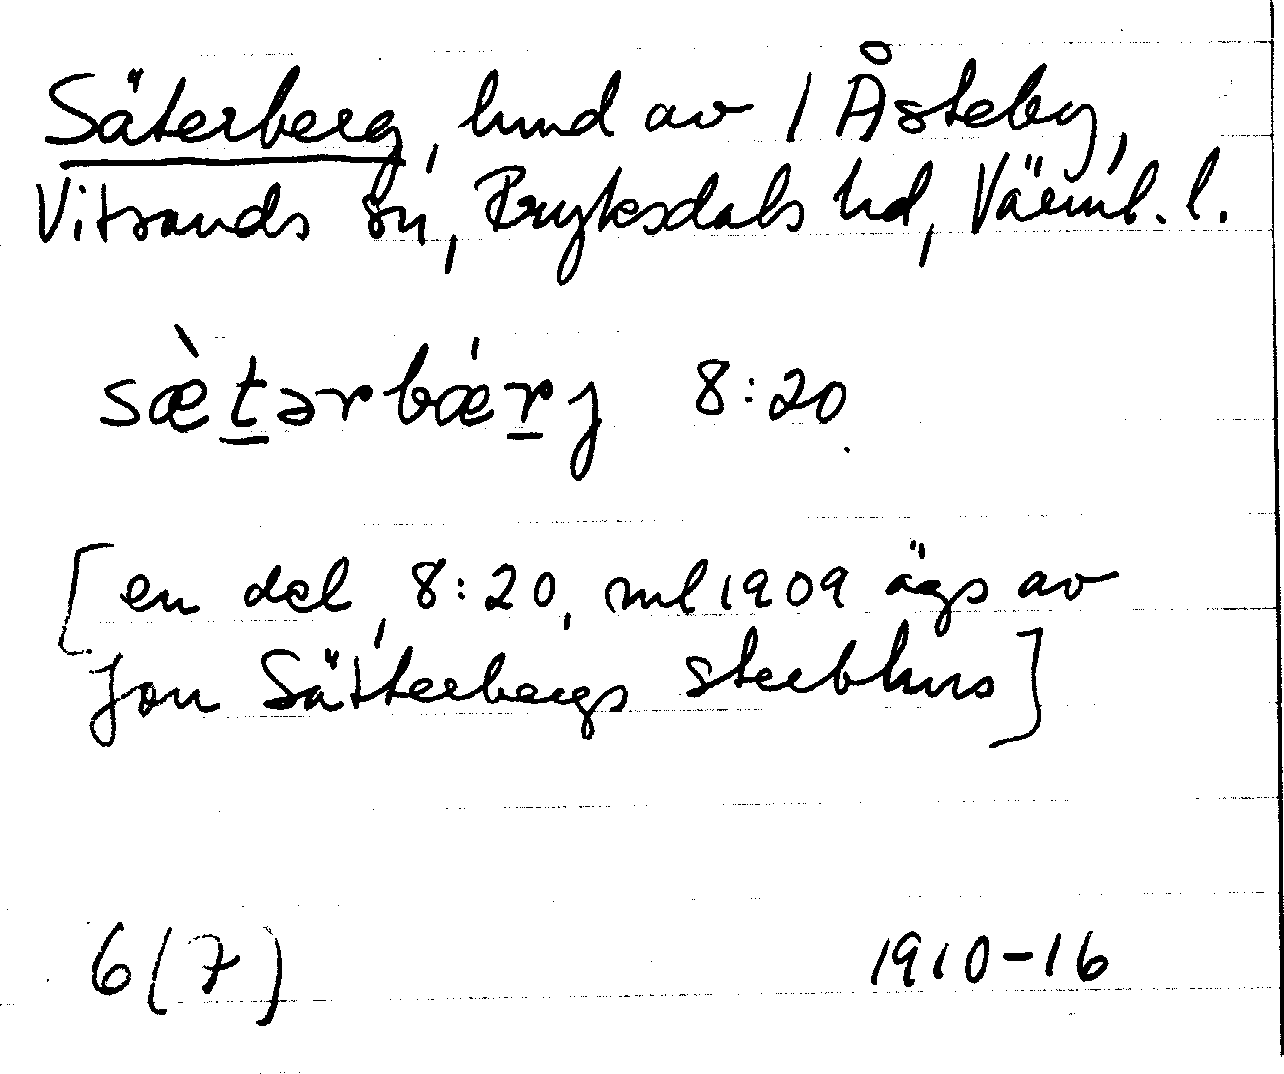 Säterberg, hmd av 1 Åsteby,
Vitsands sn, Fryksdals hd, Värml. l.
sæ̀t̲ərbǽr̲j 8:20
[en del, 8:20, ml 1909 ägs av
Jon Sätterbergs sterbhus]
6(7) 1910-16